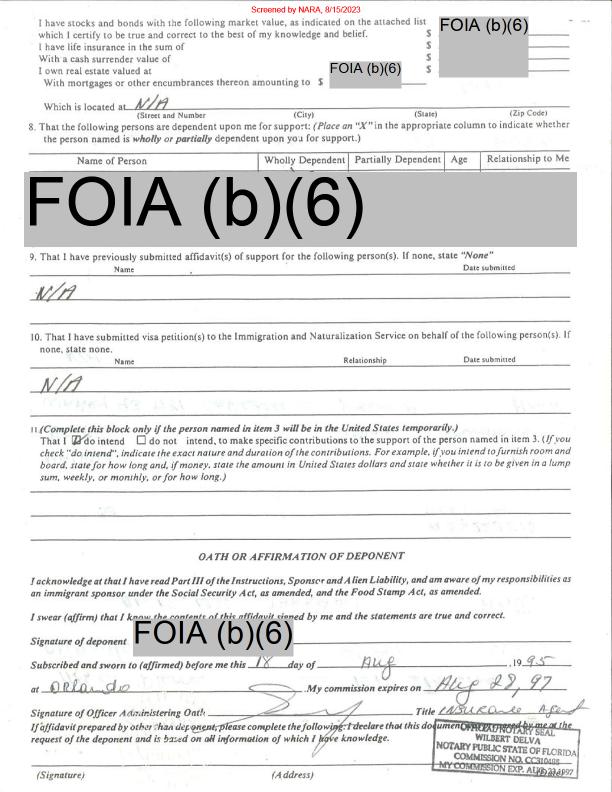 Screened by NARA, 8/15/2023
I have stocks and bonds with the following market value, as indicated on the attached list
which I certify to be true and correct to the best of my knowledge and belief. $ FOIA (b)(6)
I have life insurance in the sum of $
With a cash surrender value of $
I own real estate valued at $
With mortgages or other encumbrances thereon amounting to $ FOIA (b)(6)
Which is located at N/A
(Street and Number) (City) (State) (Zip Code)
8. That the following persons are dependent upon me for support: (Place an "X" in the appropriate column to indicate whether
the person named is wholly or partially dependent upon you for support.)
Name of Person Wholly Dependent Partially Dependent Age Relationship to Me
FOIA (b)(6)
9. That I have previously submitted affidavit(s) of support for the following person(s). If none, state "None"
Name Date submitted
N/A
10. That I have submitted visa petition(s) to the Immigration and Naturalization Service on behalf of the following person(s). If
none, state none.
Name Relationship Date submitted
N/A
11. (Complete this block only if the person named in item 3 will be in the United States temporarily.)
That I ☒ do intend ☐ do not intend, to make specific contributions to the support of the person named in item 3. (If you
check "do intend", indicate the exact nature and duration of the contributions. For example, if you intend to furnish room and
board, state for how long and, if money, state the amount in United States dollars and state whether it is to be given in a lump
sum, weekly, or monthly, or for how long.)
OATH OR AFFIRMATION OF DEPONENT
I acknowledge at that I have read Part III of the Instructions, Sponsor and Alien Liability, and am aware of my responsibilities as
an immigrant sponsor under the Social Security Act, as amended, and the Food Stamp Act, as amended.
I swear (affirm) that I know the contents of this affidavit signed by me and the statements are true and correct.
Signature of deponent FOIA (b)(6)
Subscribed and sworn to (affirmed) before me this 18 day of Aug , 19 95
at Orlando . My commission expires on Aug 28, 97
Signature of Officer Administering Oath Title INSURANCE Agent
If affidavit prepared by other than deponent, please complete the following: I declare that this document was prepared by me at the
request of the deponent and is based on all information of which I have knowledge.
OFFICIAL NOTARY SEAL
WILBERT DELVA
NOTARY PUBLIC STATE OF FLORIDA
COMMISSION NO.
MY COMMISSION EXP. AUG. 1997
(Signature) (Address) (Date)